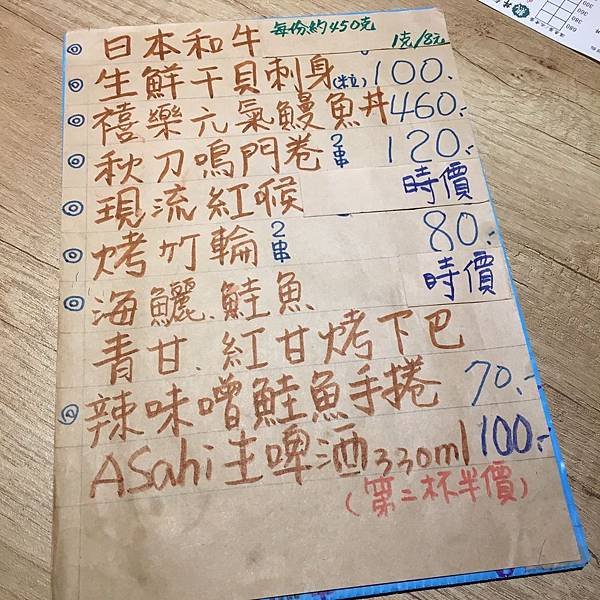 日本和牛 每份約450克 1克/8元
生鮮干貝刺身(粒) 100.-
禧樂元氣鰻魚丼 460.-
秋刀鳴門卷 2串 120.-
現流紅喉 時價
烤竹輪 2串 80.-
海鱺.鮭魚 時價
青甘.紅甘烤下巴
辣味噌鮭魚手捲 70.-
ASahi生啤酒330ml 100.-
(第二杯半價)